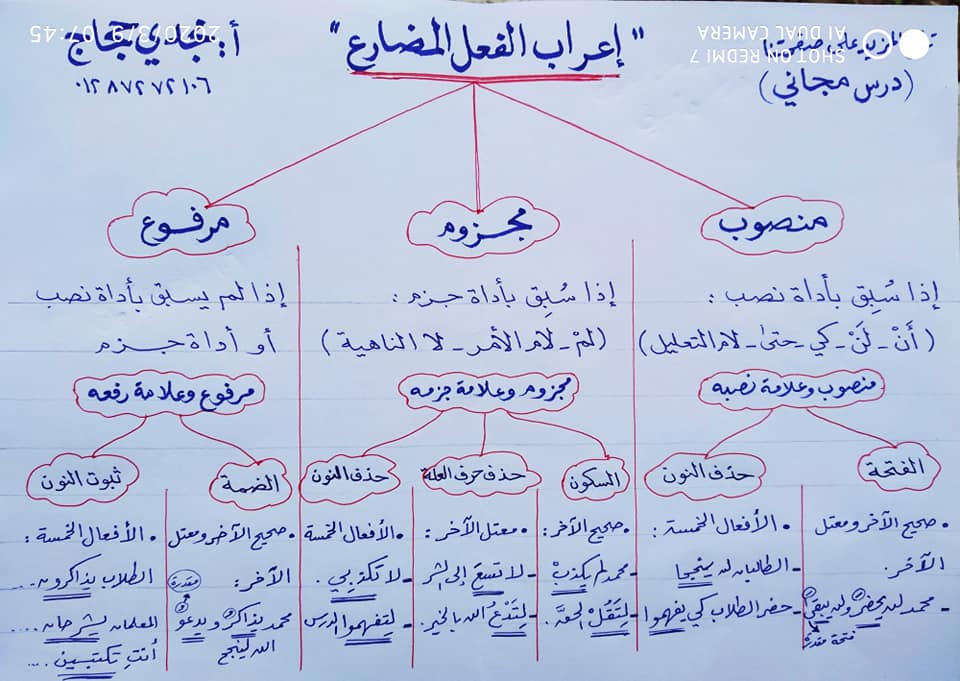 " إعراب الفعل المضارع "
(درس مجاني)
٠١٢٨٧٢٧٢١٠٦
SHOT ON REDMI 7
AI DUAL CAMERA
2020/3/9 07:45
منصوب
إذا سُبِق بأداة نصب :
(أنْ - لَنْ - كي - حتىٰ - لام التعليل)
منصوب وعلامة نصبه
الفتحة
• صحيح الآخر ومعتل
الآخر.
- محمد لن يحضرَ ولن يبقى
فتحة مقدرة
حذف النون
• الأفعال الخمسة :
- الطالبان لن ينجحا
- حضر الطلاب كي يفهموا
مجزوم
إذا سُبِق بأداة جزم :
(لمْ - لام الأمر - لا الناهية)
مجزوم وعلامة جزمه
السكون
• صحيح الآخر :
- محمد لم يكذبْ
- لِتَقُلْ الحقَّ .
حذف حرف العلة
• معتل الآخر :
- لا تسعَ إلى الشر
- لِتَدْعُ الله بالخير.
حذف النون
• الأفعال الخمسة
- لا تكذبي .
- لِتفهموا الدرس
مرفوع
إذا لم يسبق بأداة نصب
أو أداة جزم
مرفوع وعلامة رفعه
الضمة
• صحيح الآخر ومعتل
الآخر :
مقدرة
محمد يذاكرُ ويدعو
الله لينجح
ثبوت النون
• الأفعال الخمسة :
الطلاب يذاكرون ...
المعلمان يشرحان ....
أنتِ تكتبين ....